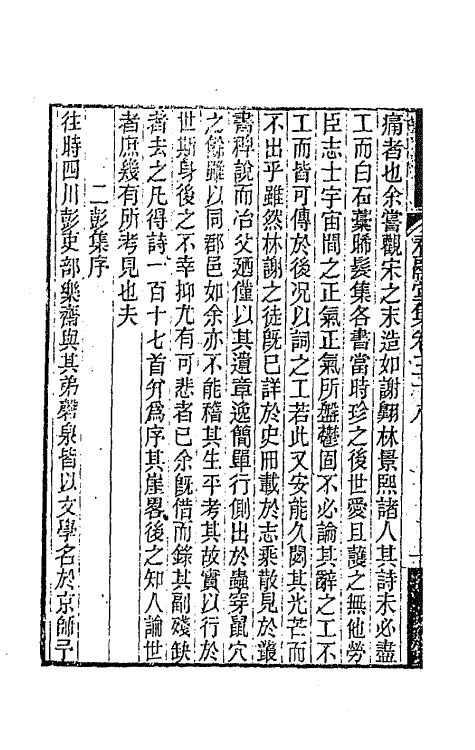 痛者也余嘗觀宋之末造如謝翱林景熙諸人其詩未必盡
工而白石藁晞髮集各書當時珍之後世愛且護之無他勞
臣志士宇宙間之正氣正氣所盤鬱固不必論其辭之工不
工而皆可傳於後況以詞之工若此又安能久閟其光芒而
不出乎雖然林謝之徒旣已詳於史冊載於志乘散見於叢
書稗說而冶父廼僅以其遺章逸簡單行側出於蟲穿鼠穴
之餘雖以同郡邑如余亦不能稽其生平考其故實以行於
世斯身後之不幸抑尤有可悲者已余旣借而錄其副殘缺
者去之凡得詩一百十七首分爲序其崖畧後之知人論世
者庶幾有所考見也夫
二彭集序
往時四川彭吏部樂齋與其弟磬泉皆以文學名於京師予